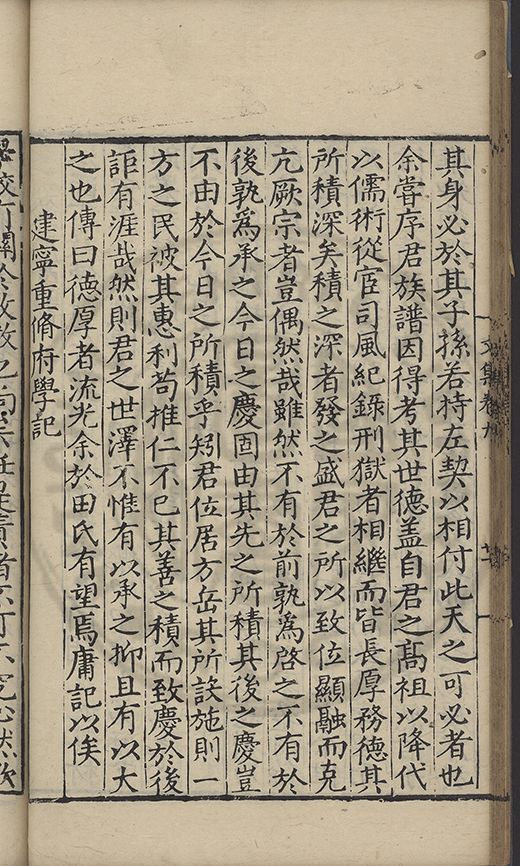 其身必於其子孫若持左契以相付此天之可必者也
余嘗序君族譜因得考其世德盖自君之髙祖以降代
以儒術從宦司風紀錄刑獄者相繼而皆長厚務德其
所積深矣積之深者發之盛君之所以致位顯融而克
亢厥宗者豈偶然哉雖然不有於前孰為啓之不有於
後孰為承之今日之慶固由其先之所積其後之慶豈
不由於今日之所積乎矧君位居方岳其所設施則一
方之民被其惠利苟推仁不已其善之積而致慶於後
詎有涯哉然則君之世澤不惟有以承之抑且有以大
之也傳曰德厚者流光余於田氏有望焉庸記以俟
建寧重脩府學記
文集卷九